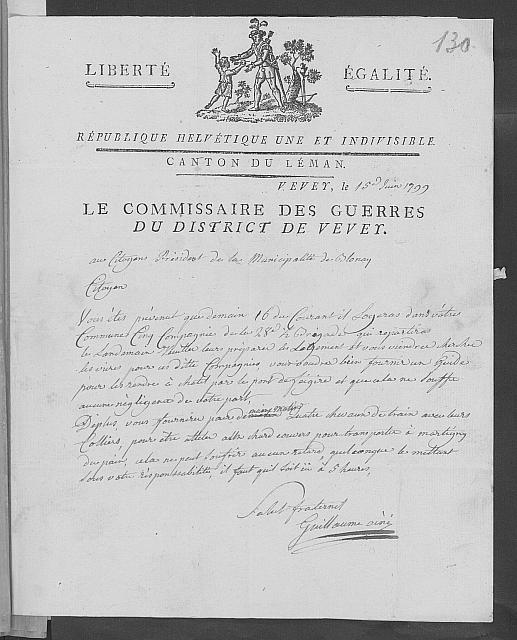 130
LIBERTÉ ÉGALITÉ.
RÉPUBLIQUE HELVÉTIQUE UNE ET INDIVISIBLE.
CANTON DU LÉMAN.
VEVEY, le 15e Juin 1799
LE COMMISSAIRE DES GUERRES
DU DISTRICT DE VEVEY.
aux Citoyens Président de la Municipalité de Blonay
Citoyen
Vous êtes prévenut que demain 16 du Courant il Logeras dans vôtre
Commune Cinq Compagnie de la 28e ½ Brigade qui repartiras
le Landemain Veuillez leurs préparer le Logement et vous viendrez
les vivres pour ces dite Compagnies, vous voudrez bien fournir un Guide
pour les rendre à chatel par le pont de et que cela ne souffre
aucune négligence de votre part,
Deplus vous fournirez pour demain matin Quatre chevaux de train avec leurs
Colliers, pour être atteler aux chard couvers pour transporter à martigny
du pain, cela ne peut souffrir aucun retard quelconque le mettant
sous votre responsabilité, il faut qu'il soit ici à 5 heures,
Salut fraternel
Guillaume ainé